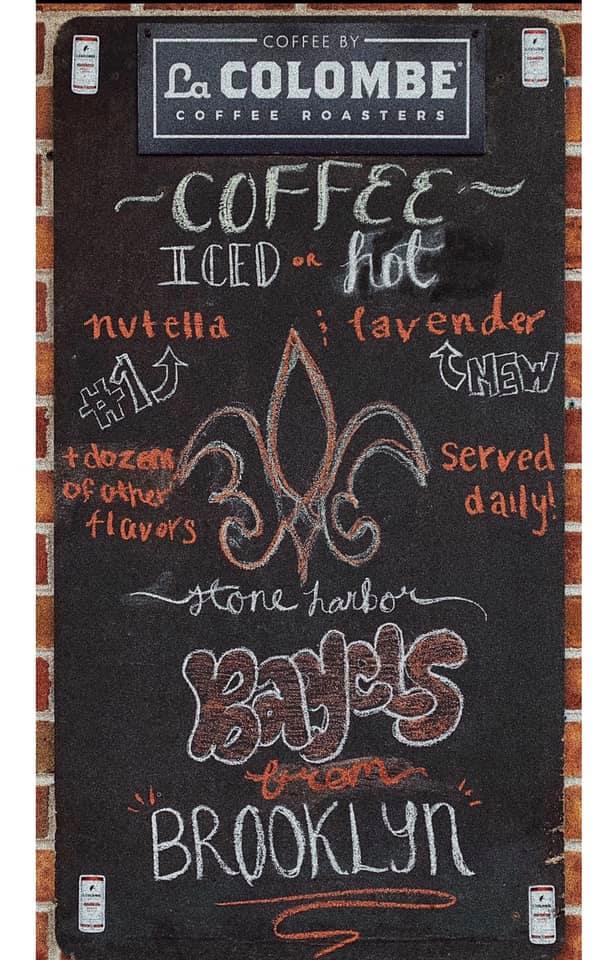 COFFEE BY
La COLOMBE
COFFEE ROASTERS
~COFFEE~
ICED OR hot
nutella & lavender
#1 NEW
+ dozens
of other
flavors
served
daily!
stone harbor
Bagels
from
BROOKLYN